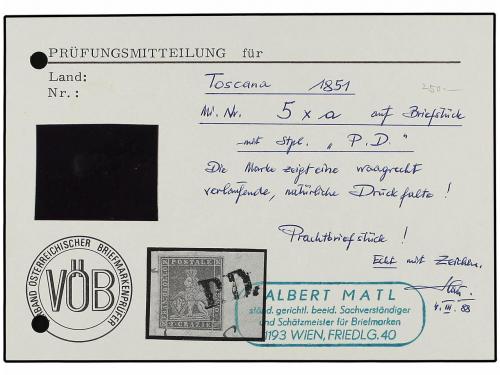 PRÜFUNGSMITTEILUNG für
Land: Toscana 1851
250.-
Nr.: Mi. Nr. 5 x a auf Briefstück
mit Stpl. „P.D."
Die Marke zeigt eine waagrecht
verlaufende, natürliche Druckfalte!
Prachtbriefstück!
Echt mit Zeichen.
4. III. 88
VERBAND ÖSTERREICHISCHER BRIEFMARKENPRÜFER
VÖB
POSTALE
P.D.
ALBERT MATL
ständ. gerichtl. beeid. Sachverständiger
und Schätzmeister für Briefmarken
1193 WIEN, FRIEDLG. 40